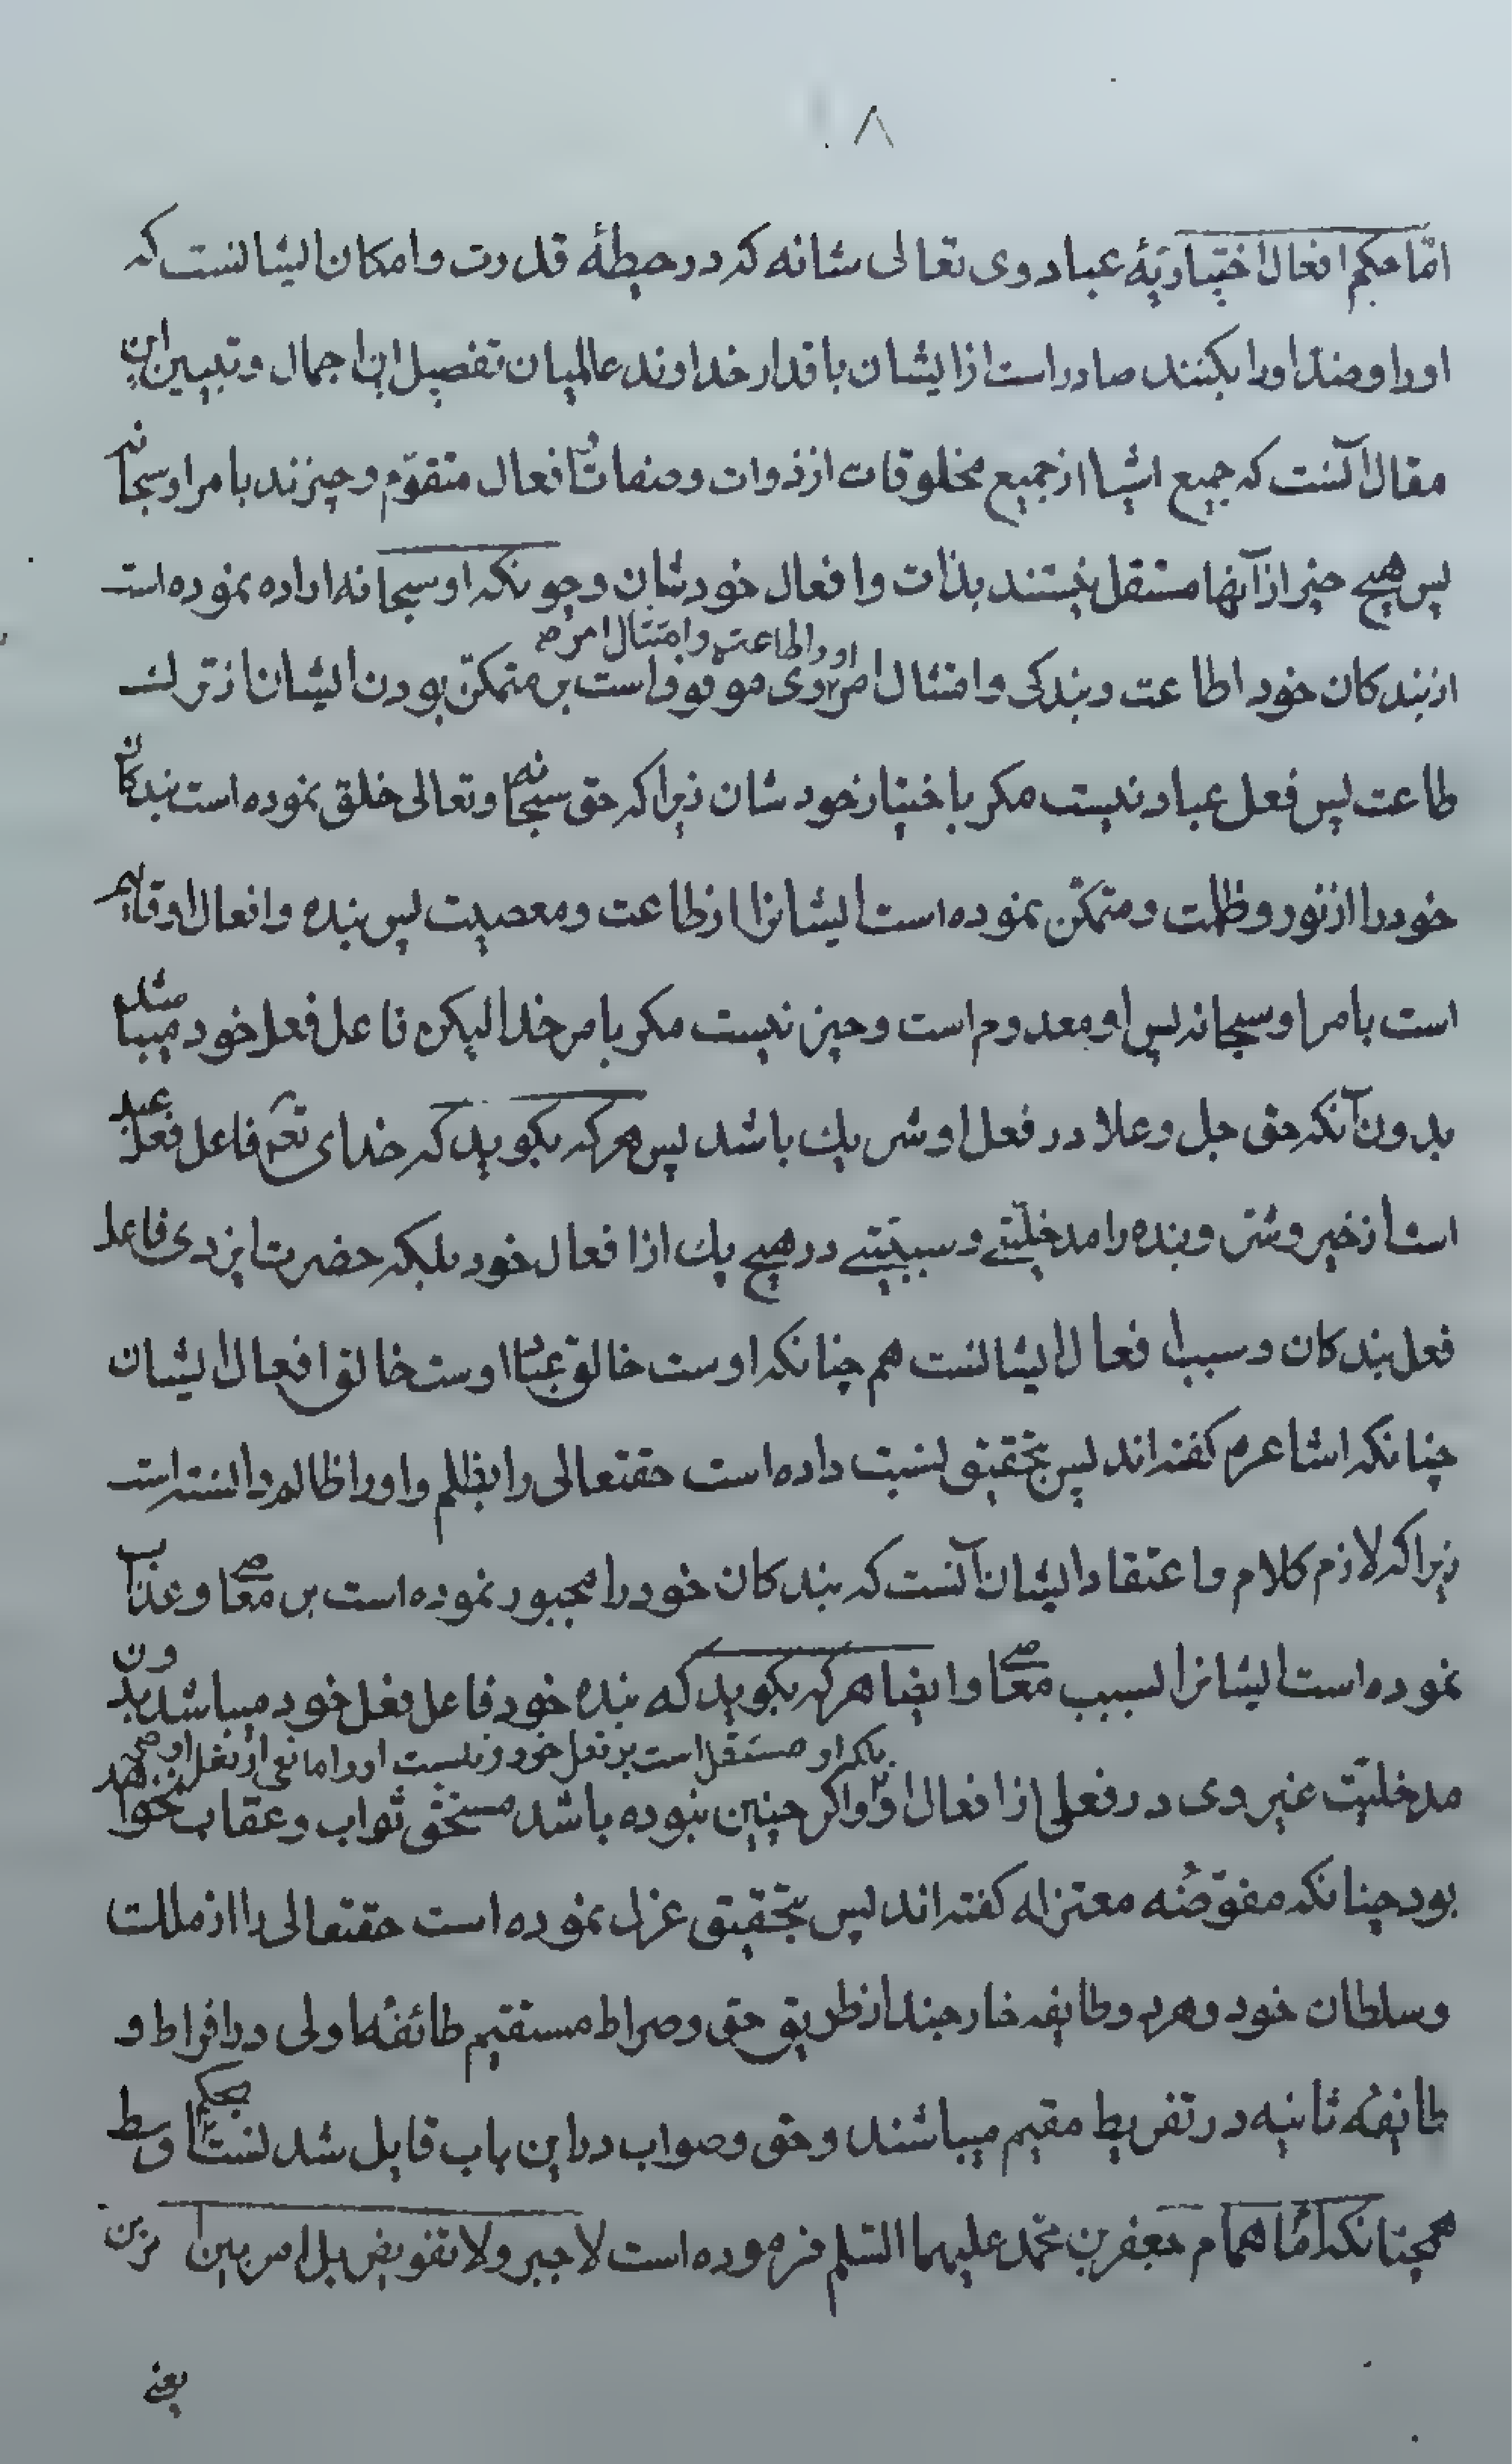 ۸
امّا حکم افعال اختیاریّهٔ عباد وی تعالی شانه که در حیطهٔ قدرت و امکان ایشانست که
او را و ضدّ او را بکنند صادر است از ایشان باقدار خداوند عالمیان تفصیل این اجمال و تبیین این
مقال آنست که جمیع اشیا از جمیع مخلوقات از ذوات و صفات و افعال متقوّم و چیزند بامر او سبحانه
پس هیچ چیز از آنها مستقل نیستند بذات و افعال خودشان و چونکه او سبحانه اراده نموده است
از بندکان خود اطاعت و بندکی و امتثال امر وی موقوف است بر متمکّن بودن ایشان از ترک
او را اطاعت و امتثال امر
طاعت پس فعل عباد نیست مکر باختیار خودشان زیرا که حق سبحانه و تعالی خلق نموده است بندکان
خود را از نور و ظلمت و متمکّن نموده است ایشانرا از طاعت و معصیت پس بنده و افعال او قایم
است بامر او سبحانه پس او معدوم است و چیز نیست مکر بامر خدا لیکن فاعل فعل خود میباشد
بدون آنکه حق جل و علا در فعل او شریک باشد پس هر که بکوید که خدای تعم فاعل فعل عبد
است از خیر و شر و بنده را مدخلیّتے و سببیّتے در هیچ یک از افعال خود بلکه حضرت ایزدی فاعل
فعل بندکان و سبب افعال ایشانست هم چنانکه اوست خالق عباد اوست خالق افعال ایشان
چنانکه اشاعره کفته اند پس بتحقیق نسبت داده است حقتعالی را بظلم و او را ظالم دانسته است
زیرا که لازم کلام و اعتقاد ایشان آنست که بندکان خود را مجبور نموده است بر معاصے و عذاب
نموده است ایشانرا بسبب معاصے و ایضا هر که بکوید که بنده خود فاعل فعل خود میباشد بدون
مدخلیّت غیر وی در فعلی از افعال او و اکر چنین نبوده باشد مستحق ثواب و عقاب نخواهد
بلکه او مستقل است بر فعل خود و نیست او را مانعی از فعل او
بود چنانکه مفوّضه معتزله کفته اند پس بتحقیق عزل نموده است حقتعالی را از مملکت
و سلطان خود و هر دو طایفه خارجند از طریق حق و صراط مستقیم طائفهٔ اولی در افراط و
طایفهٔ ثانیه در تفریط مقیم میباشند و حق و صواب در این باب قایل شدنست بحکم وسط
همچنانکه امام همام جعفر بن محمّد علیهما السّلم فرموده است لا جبر و لا تفویض بل امر بین
یعنے